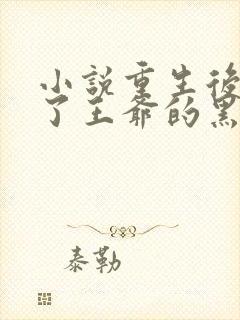 小說重生後
了王爺的黑
泰勒